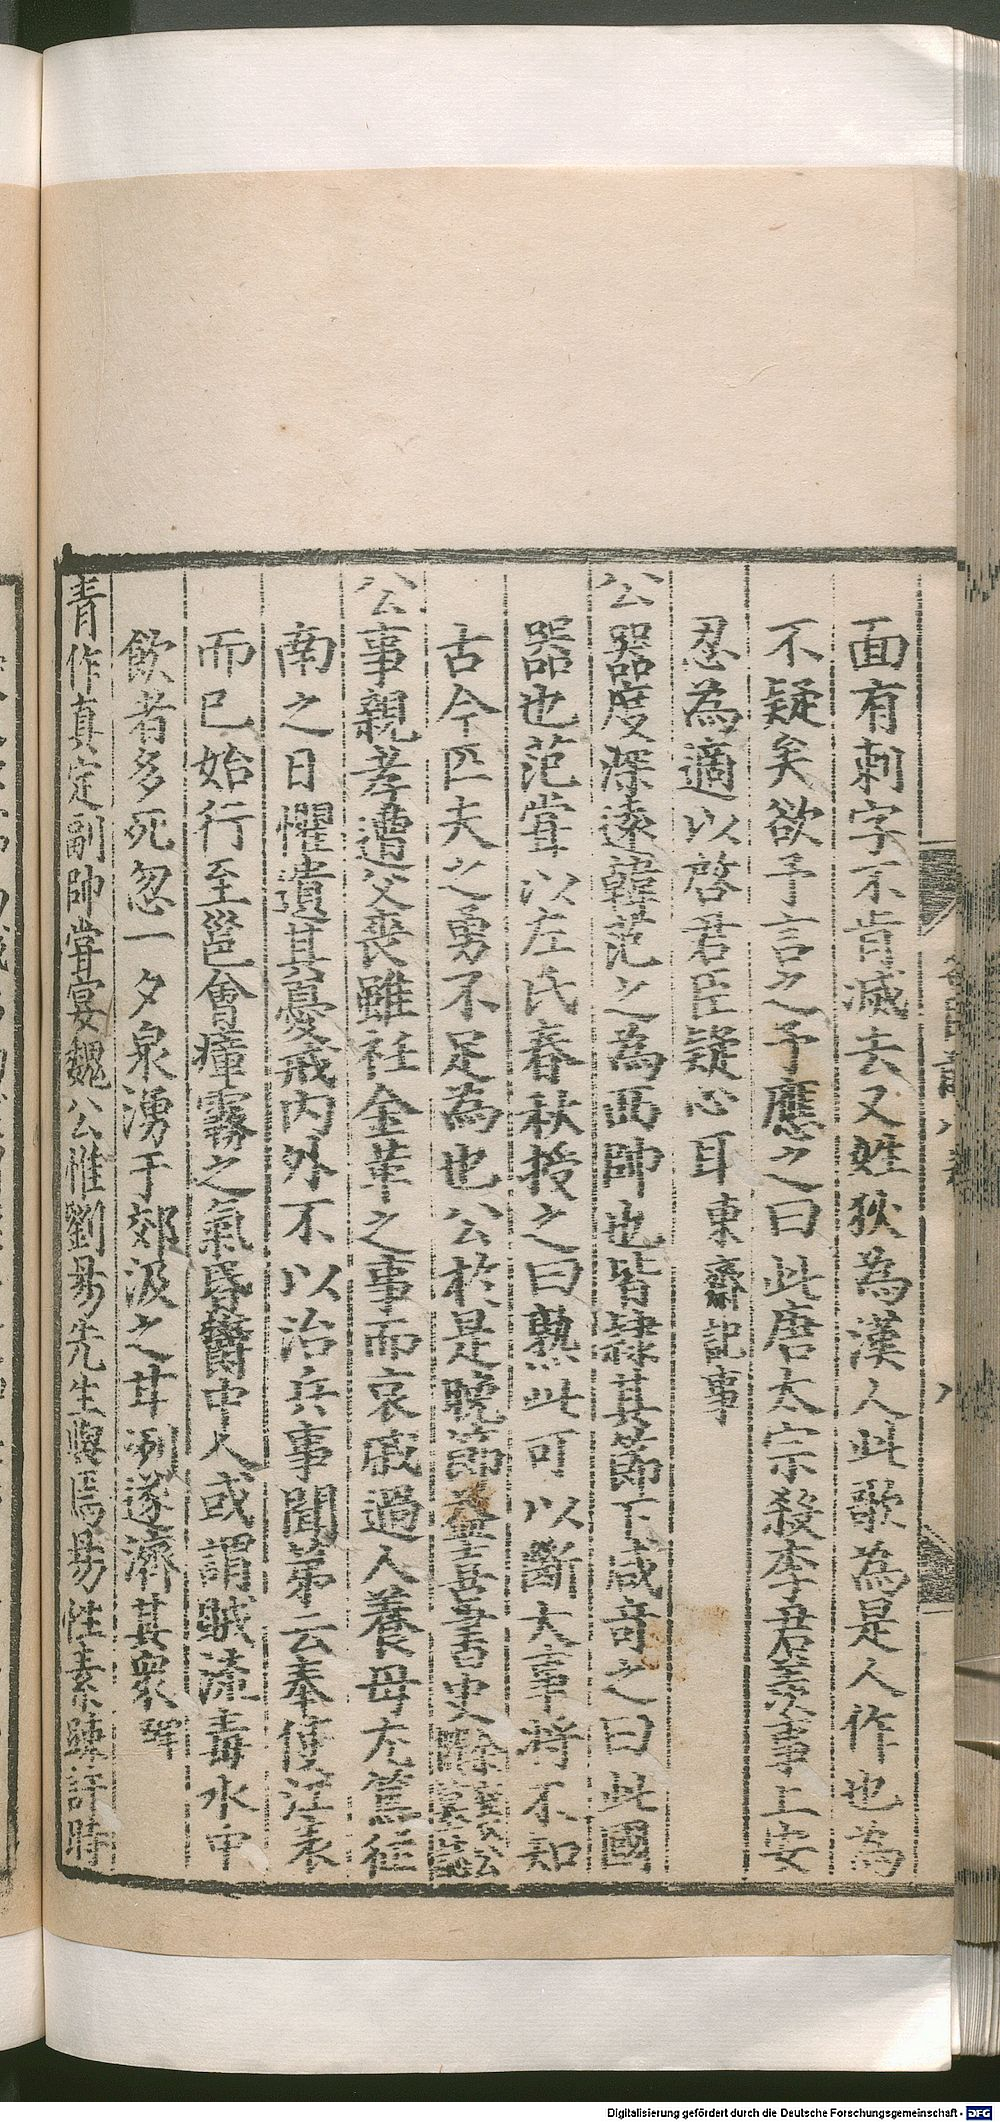 面有刺字不肯滅去又姓狄為漢人此歌為是人作也為
不疑矣欲予言之予應之曰此唐太宗殺李君羨事上安
忍為適以啓君臣疑心耳東齋記事
公器度深遠韓范之為西帥也皆隸其節下咸奇之曰此國
器也范嘗以左氏春秋授之曰熟此可以斷大事將不知
古今匹夫之勇不足為也公於是晩節益喜書史
公事親孝遭父喪雖在金革之事而哀戚過人養母尤篤征
南之日懼遺其憂戒内外不以治兵事聞第云奉使江表
而已始行至邕會瘴霧之氣昏鬱中人或謂賊流毒水中
飲者多死忽一夕泉湧于郊汲之甘冽遂濟其衆
青作真定副帥嘗宴魏公惟劉易先生與焉易性素疎訐時
八
Digitalisierung gefördert durch die Deutsche Forschungsgemeinschaft - DFG